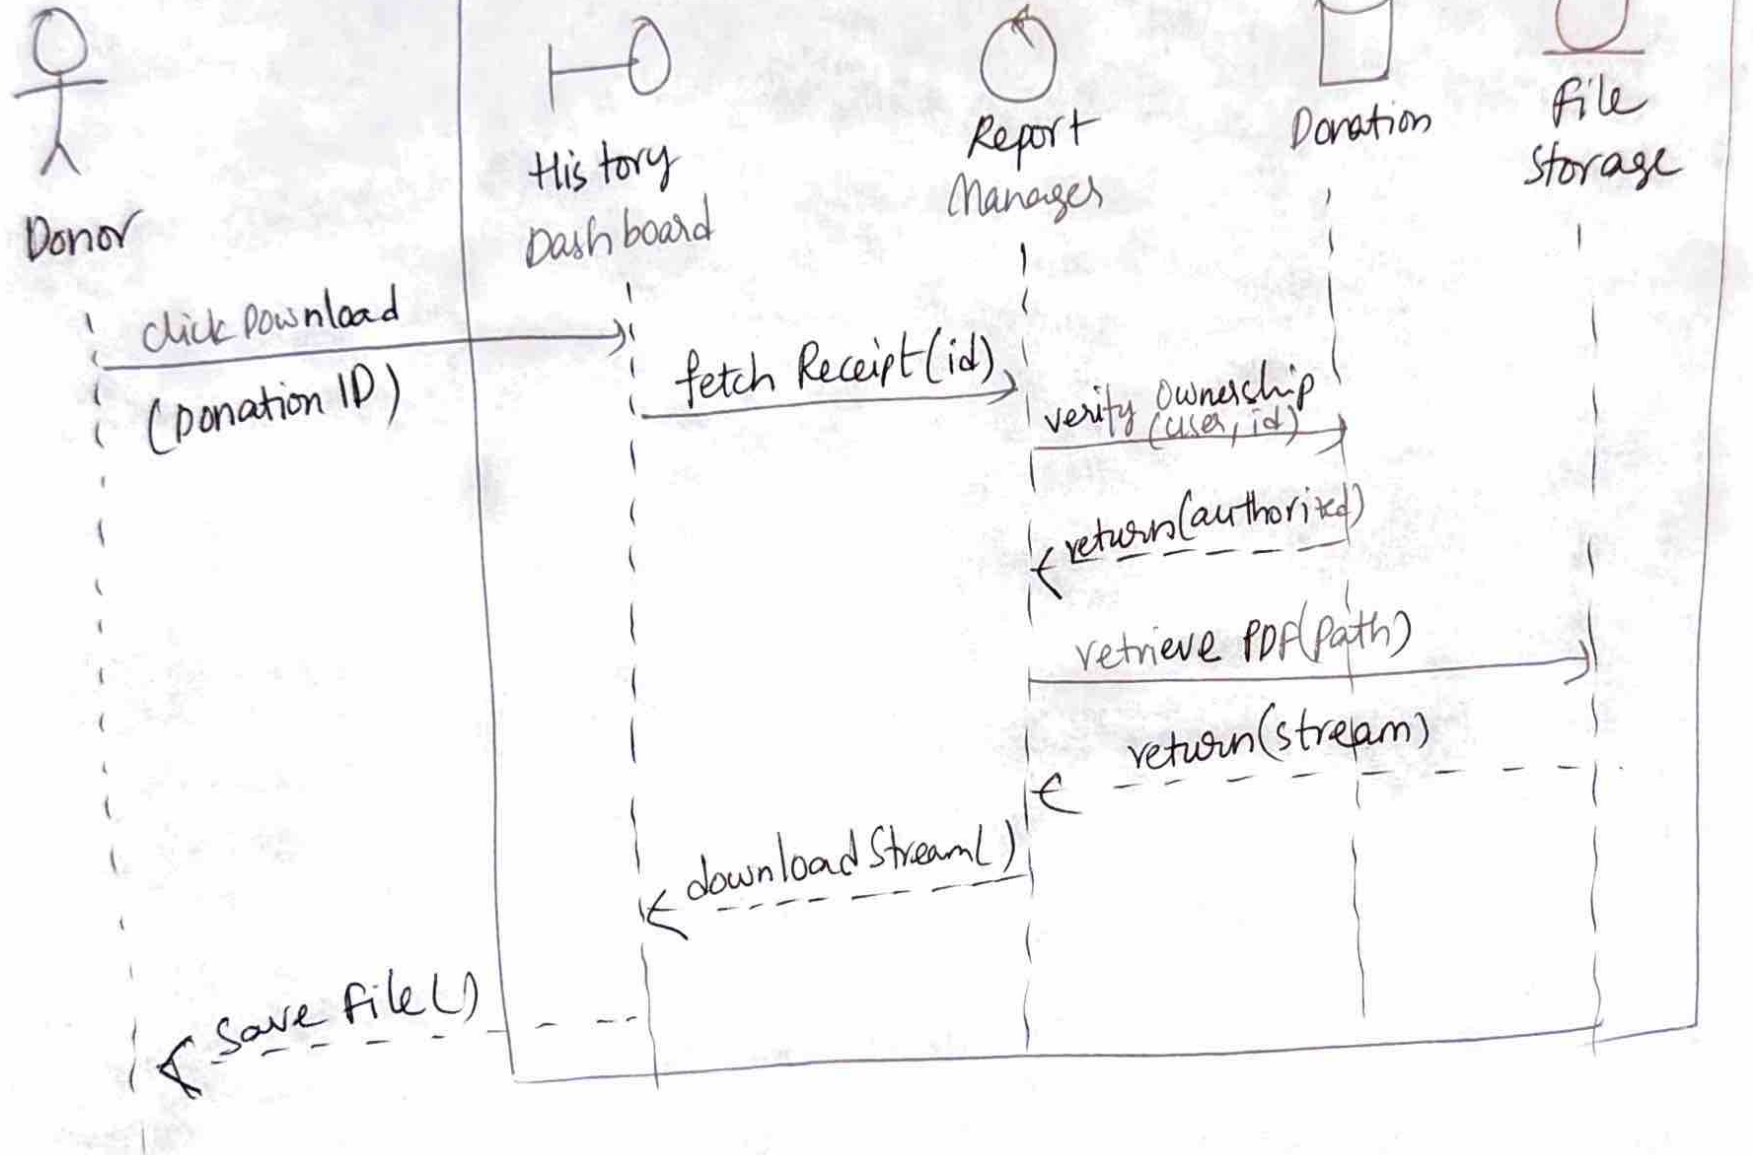 Donor
History
Dashboard
Report
Manager
Donation
File
Storage
click Download
(Donation ID)
fetch Receipt(id)
verify Ownership
(user, id)
return(authorized)
retrieve PDF(path)
return(stream)
downloadStream()
Save File()